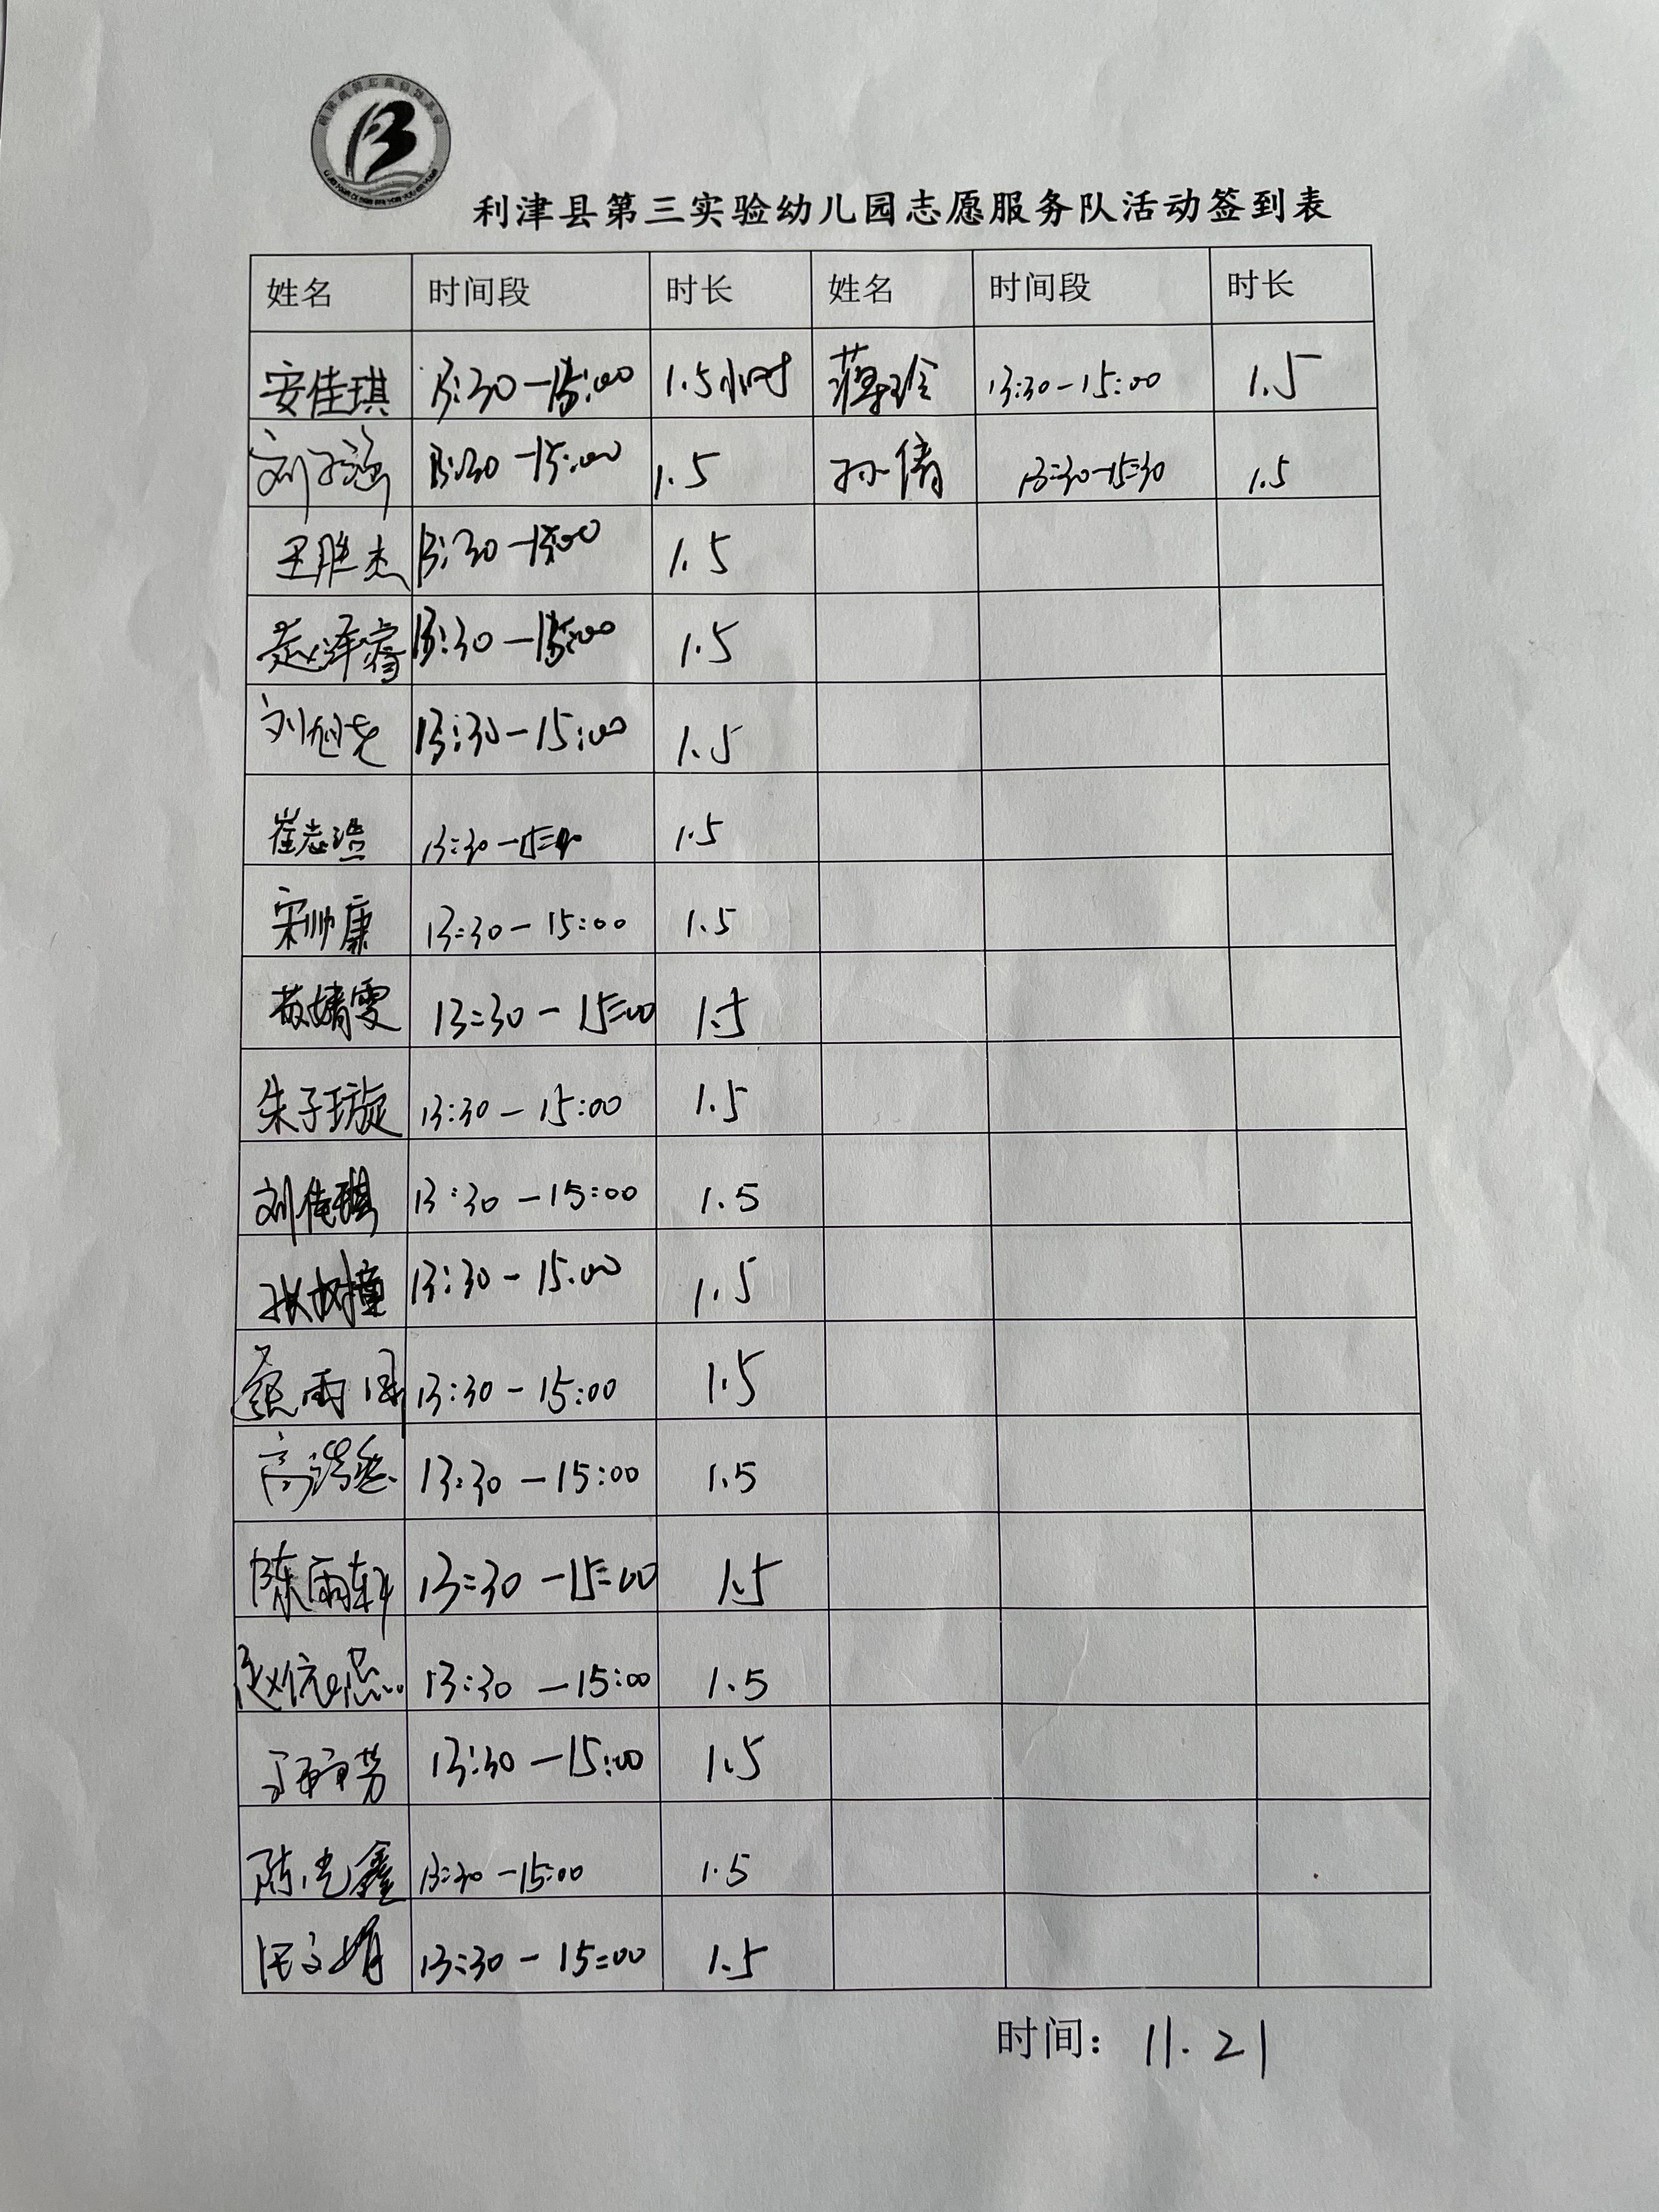 利津县第三实验幼儿园志愿服务队活动签到表
姓名 时间段 时长 姓名 时间段 时长
安佳琪 13:30-15:00 1.5小时 薄玲 13:30-15:00 1.5
刘子涵 13:30-15:00 1.5 孙倩 13:30-15:30 1.5
王胜杰 13:30-15:00 1.5
赵泽睿 13:30-15:00 1.5
刘旭尧 13:30-15:00 1.5
崔志浩 13:30- 1.5
宋帅康 13:30-15:00 1.5
苟婧雯 13:30-15:00 1.5
朱子璇 13:30-15:00 1.5
刘佳琪 13:30-15:00 1.5
张树 13:30-15.00 1.5
雨 13:30-15:00 1.5
高 13:30-15:00 1.5
陈雨轩 13:30-15:00 1.5
赵 13:30-15:00 1.5
13:30-15:00 1.5
陈光鑫 13:30-15:00 1.5
文娟 13:30-15:00 1.5
时间：11.21